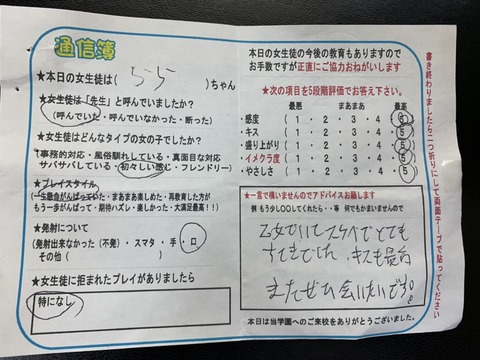 通信簿
★本日の女生徒は(らら)ちゃん
★女生徒は「先生」と呼んでいましたか?
(呼んでいた・呼んでいなかった・断った)
★女生徒はどんなタイプの女の子でしたか?
(事務的対応・風俗馴れしている・真面目な対応
サバサバしている・初々しい感じ・フレンドリー)
★プレイスタイル
(一生懸命がんばっていた・まあまあ楽しめた・再教育した方が
もう一歩がんばって・期待ハズレ・楽しかった・大満足最高!!)
★発射について
(発射出来なかった(不発)・スマタ・手・口
その他( )
★女生徒に拒まれたプレイがありましたら
特になし
本日の女生徒の今後の教育もありますので
お手数ですが正直にご協力おねがいします
★次の項目を5段階評価でお答え下さい。
最悪 まあまあ 最高
感度 (1・2・3・4・5)
キス (1・2・3・4・5)
盛り上がり (1・2・3・4・5)
イメクラ度 (1・2・3・4・5)
やさしさ (1・2・3・4・5)
★一言で構いませんのでアドバイスお願します
例 もう少し〇〇してくれたら・・等 何でもかまいませんので
乙女でいてスケベでとても
すてきでした。キスも最高
またぜひ会いたいです。
本日は当学園へのご来校をありがとうございました。
書き終わりましたら二つ折りにして両面テープで貼ってください